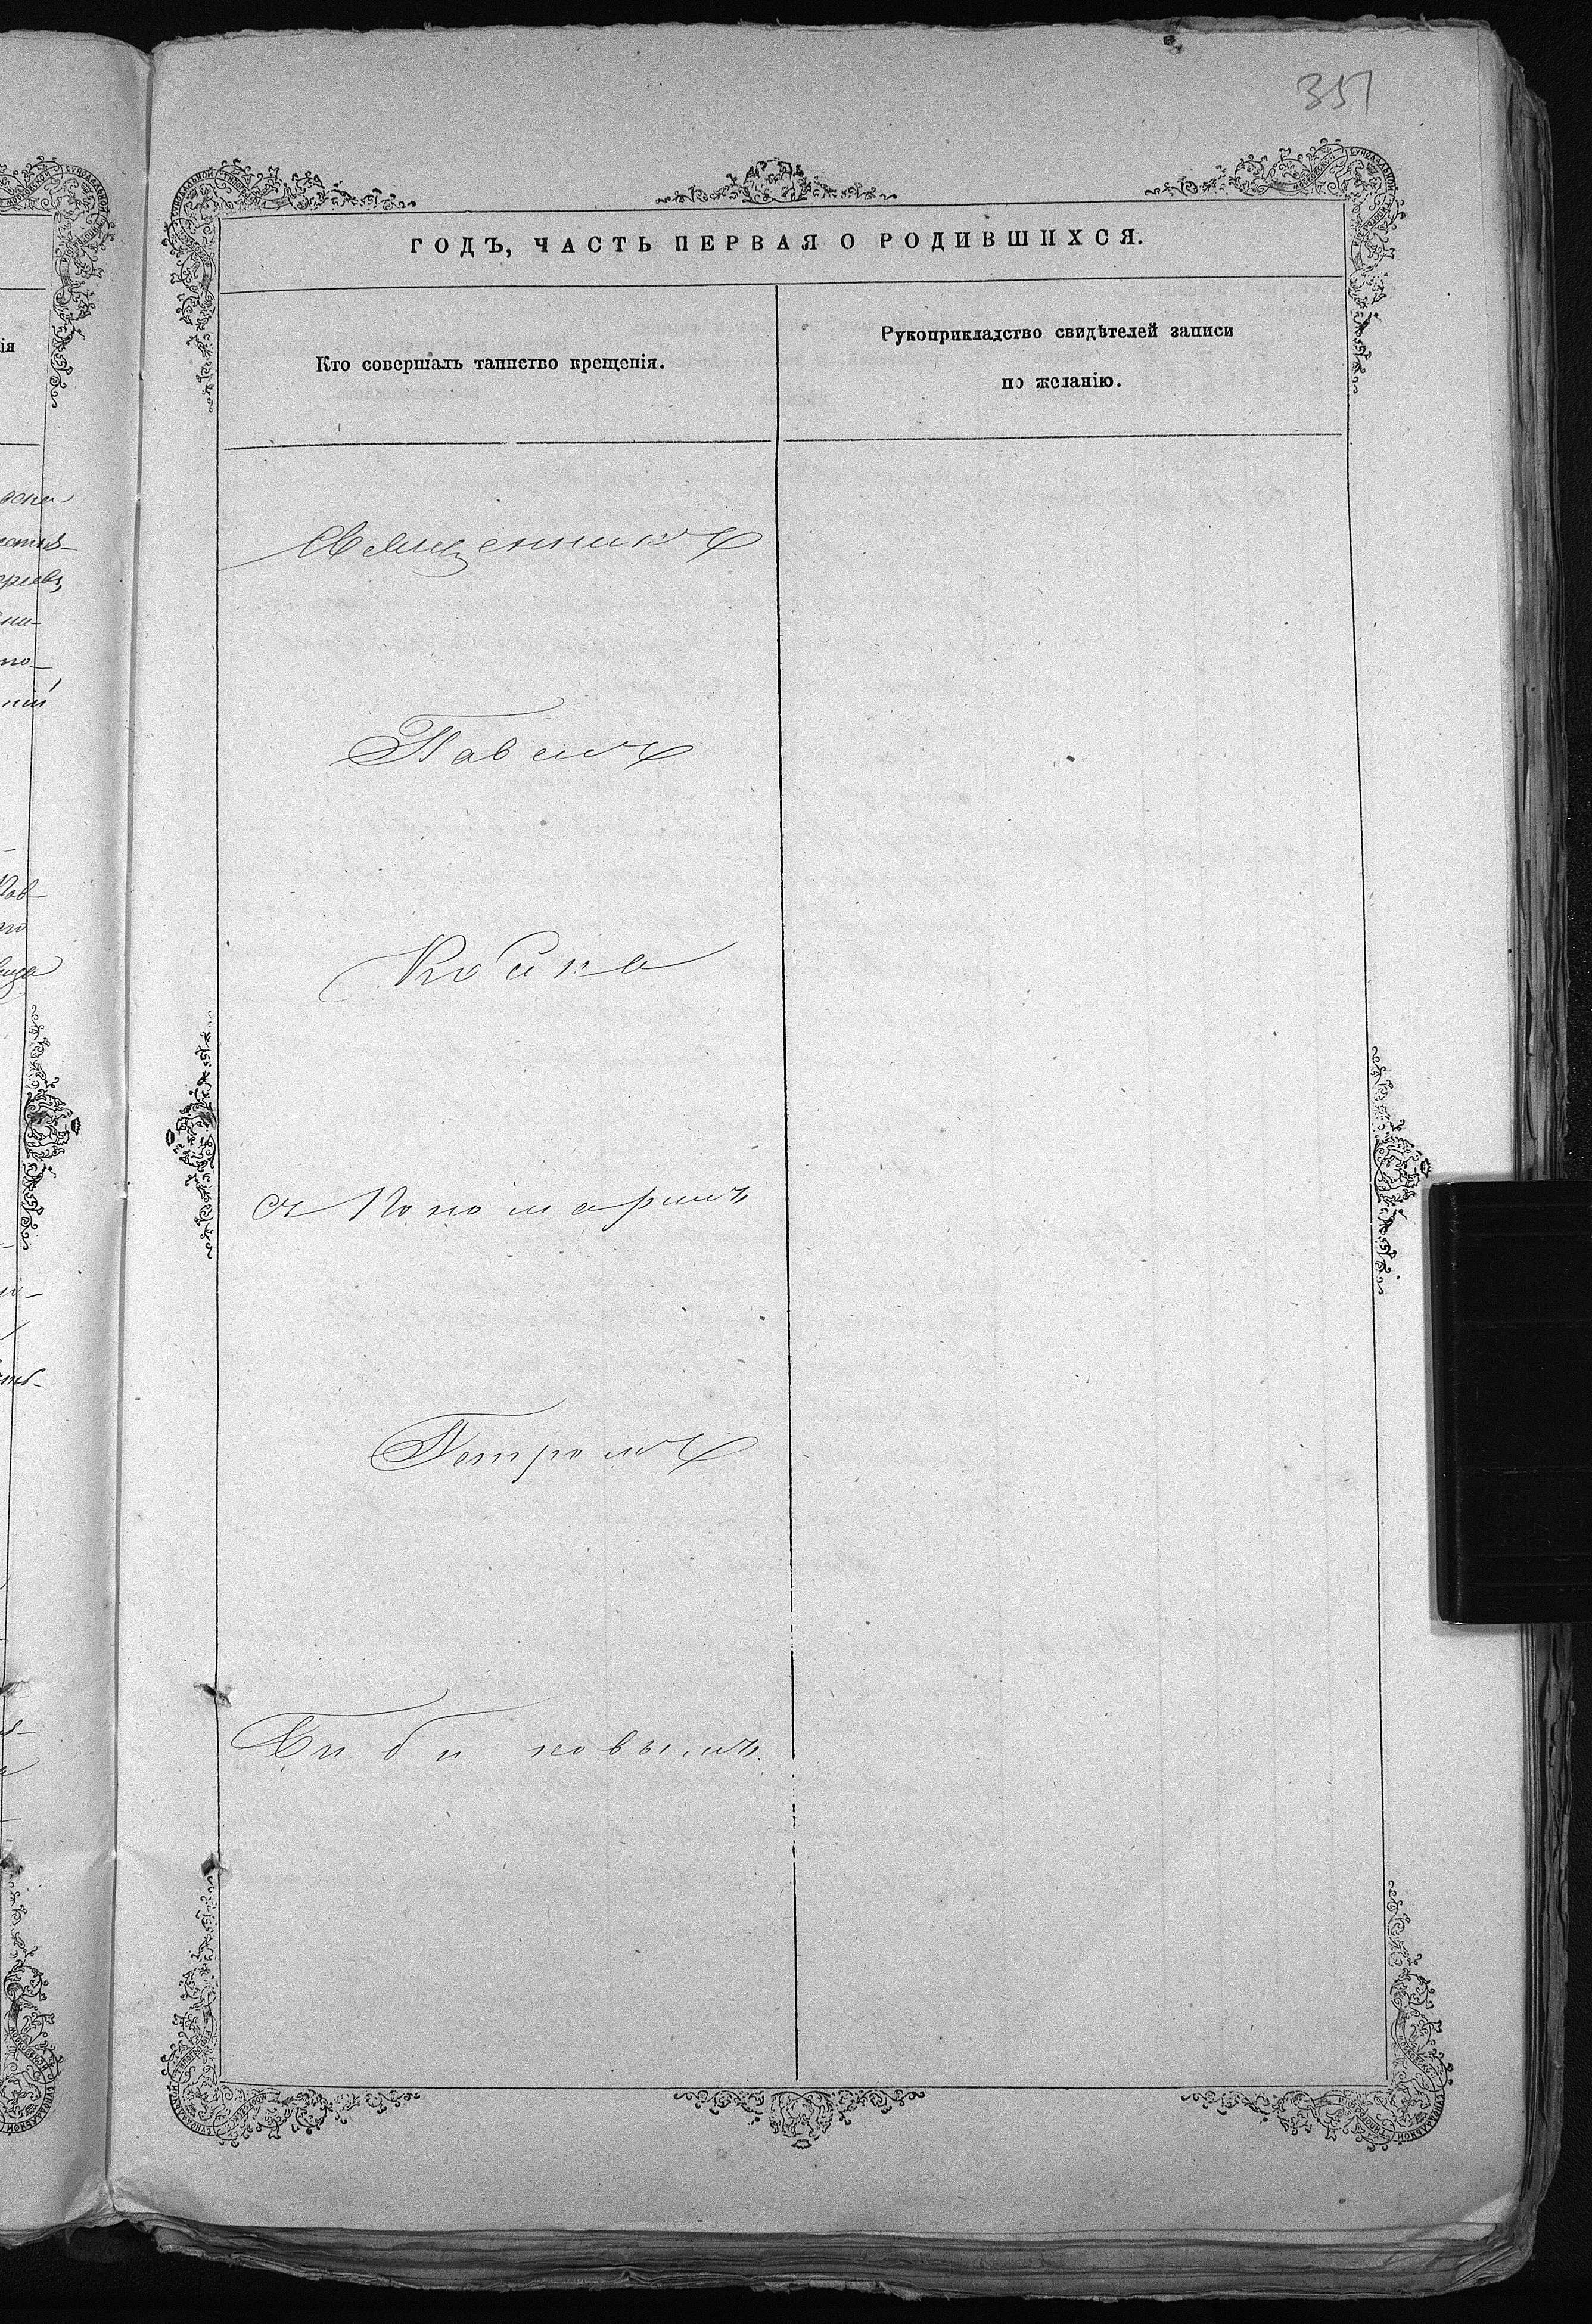 351
ГОДЪ, ЧАСТЬ ПЕРВАЯ О РОДИВШИХСЯ.
Кто совершалъ таинство крещенія.
Рукоприкладство свидѣтелей записи
по желанію.
Священникъ
Павелъ
Койка
съ Пономаремъ
Петромъ
Бибиковымъ